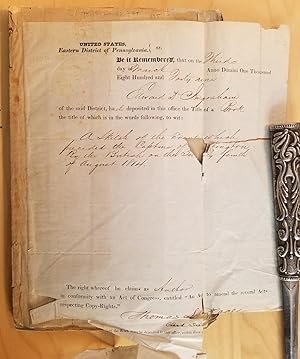 UNITED STATES,
Eastern District of Pennsylvania, ss:
Be it Remembered, that on the Third
day of March Anno Domini One Thousand
Eight Hundred and Forty nine
Edward D. Ingraham
of the said District, hath deposited in this office the Title of a Book
the title of which is in the words following, to wit:
A Sketch of the Events which
preceded the Capture of Washington,
By the British on the Twenty fourth
of August 1814.
The right whereof he claims as Author
in conformity with an Act of Congress, entitled "An Act to amend the several Acts
respecting Copy-Rights."